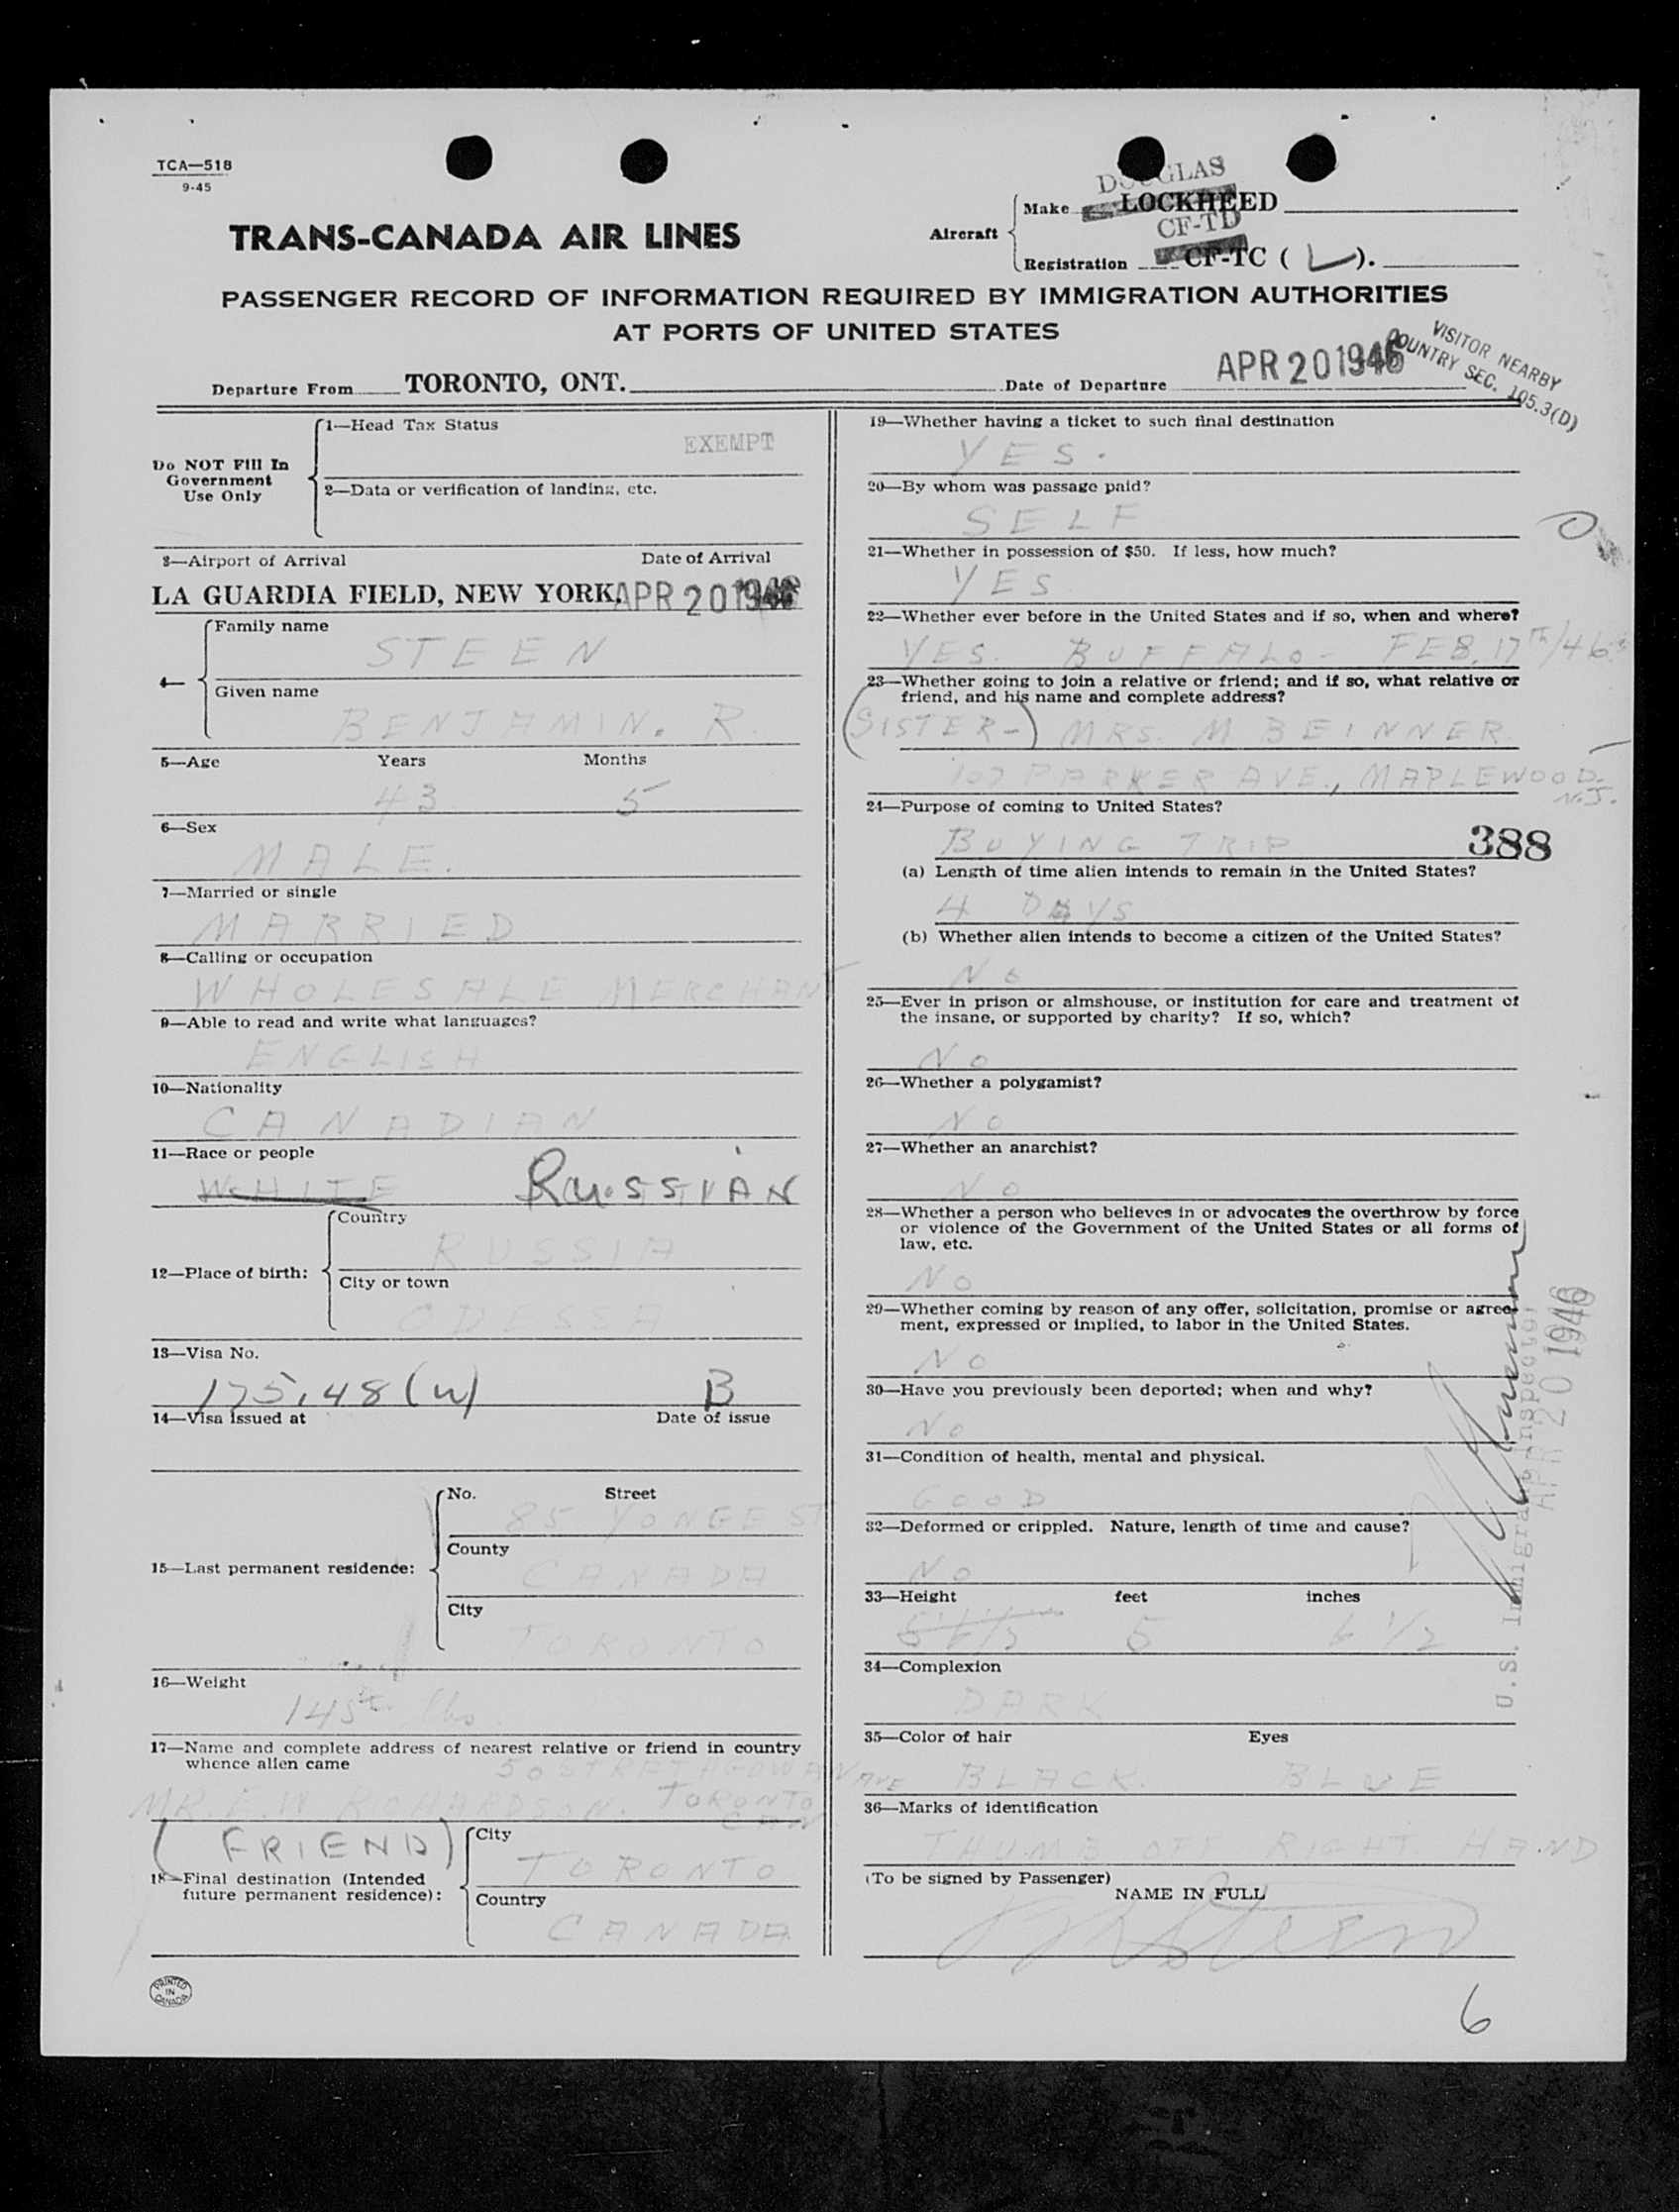 TCA—518
9-45
DOUGLAS
Aircraft
Make LOCKHEED
CF-TD
Registration CF-TC ( L ).
TRANS-CANADA AIR LINES
PASSENGER RECORD OF INFORMATION REQUIRED BY IMMIGRATION AUTHORITIES
AT PORTS OF UNITED STATES
VISITOR NEARBY
COUNTRY SEC. 105.3(D)
Departure From TORONTO, ONT. Date of Departure APR 20 1946
Do NOT Fill In
Government
Use Only
1—Head Tax Status
EXEMPT
2—Data or verification of landing, etc.
3—Airport of Arrival Date of Arrival
LA GUARDIA FIELD, NEW YORK, APR 20 1946
4—
Family name
STEEN
Given name
BENJAMIN. R.
5—Age Years Months
43 5
6—Sex
MALE.
7—Married or single
MARRIED
8—Calling or occupation
WHOLESALE MERCHANT
9—Able to read and write what languages?
ENGLISH
10—Nationality
CANADIAN
11—Race or people
WHITE RUSSIAN
12—Place of birth:
Country
RUSSIA
City or town
ODESSA
13—Visa No.
175.48 (W) B
14—Visa issued at Date of issue
15—Last permanent residence:
No. Street
85 YONGE ST
County
CANADA
City
TORONTO
16—Weight
145 lbs
17—Name and complete address of nearest relative or friend in country
whence alien came
50 STRATHGOWAN AVE
MR. E. W. RICHARDSON. TORONTO
CAN
(FRIEND)
18—Final destination (Intended
future permanent residence):
City
TORONTO
Country
CANADA
PRINTED
IN
CANADA
19—Whether having a ticket to such final destination
YES.
20—By whom was passage paid?
SELF
21—Whether in possession of $50. If less, how much?
YES
22—Whether ever before in the United States and if so, when and where?
YES. BUFFALO - FEB. 17th/46
23—Whether going to join a relative or friend; and if so, what relative or
friend, and his name and complete address?
(SISTER-) MRS. M BEINNER
107 PARKER AVE., MAPLEWOOD.
N.J.
24—Purpose of coming to United States?
BUYING TRIP
388
(a) Length of time alien intends to remain in the United States?
4 DAYS
(b) Whether alien intends to become a citizen of the United States?
NO
25—Ever in prison or almshouse, or institution for care and treatment of
the insane, or supported by charity? If so, which?
NO
26—Whether a polygamist?
NO
27—Whether an anarchist?
NO
28—Whether a person who believes in or advocates the overthrow by force
or violence of the Government of the United States or all forms of
law, etc.
NO
29—Whether coming by reason of any offer, solicitation, promise or agree-
ment, expressed or implied, to labor in the United States.
NO
30—Have you previously been deported; when and why?
NO
31—Condition of health, mental and physical.
GOOD
32—Deformed or crippled. Nature, length of time and cause?
NO
33—Height feet inches
5 6 1/2
34—Complexion
DARK
35—Color of hair Eyes
BLACK. BLUE
36—Marks of identification
THUMB OFF RIGHT HAND
(To be signed by Passenger)
NAME IN FULL
BRSteen
U.S. Immigrant Inspector
APR 20 1946
6